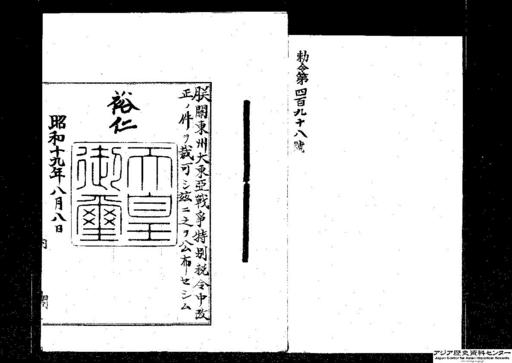 勅令第四百九十八號
朕關東州大東亞戰爭特別税令中改
正ノ件ヲ裁可シ茲ニ之ヲ公布セシム
裕仁
天皇
御璽
昭和十九年八月八日
内
閣
アジア歴史資料センター
Japan Center for Asian Historical Records